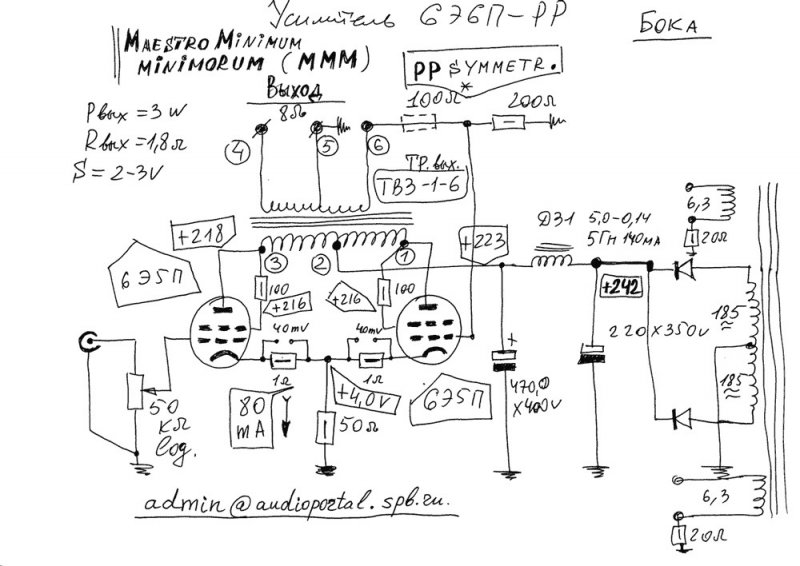 Усилитель 6Э6П-РР
Бока
MAESTRO MINIMUM
MINIMORUM (MMM)
PP SYMMETR.
*
Выход
8Ω
100Ω
200Ω
Pвых = 3 W
Rвых = 1,8 Ω
S = 2-3V
4
5
6
ТР. вых.
ТВЗ-1-6
+218
+223
ДЗ1 5,0-0,14
5ГН 140 мА
6,3
20Ω
3
2
1
6Э5П
100
+216
+216
100
+242
220 X 350V
185
≈
40mV
40mV
1Ω
1Ω
+
470,0
X 400V
185
≈
50
КΩ
Log.
80
mA
+4,0V
50Ω
6Э5П
6,3
20Ω
admin@audioportal.spb.ru.